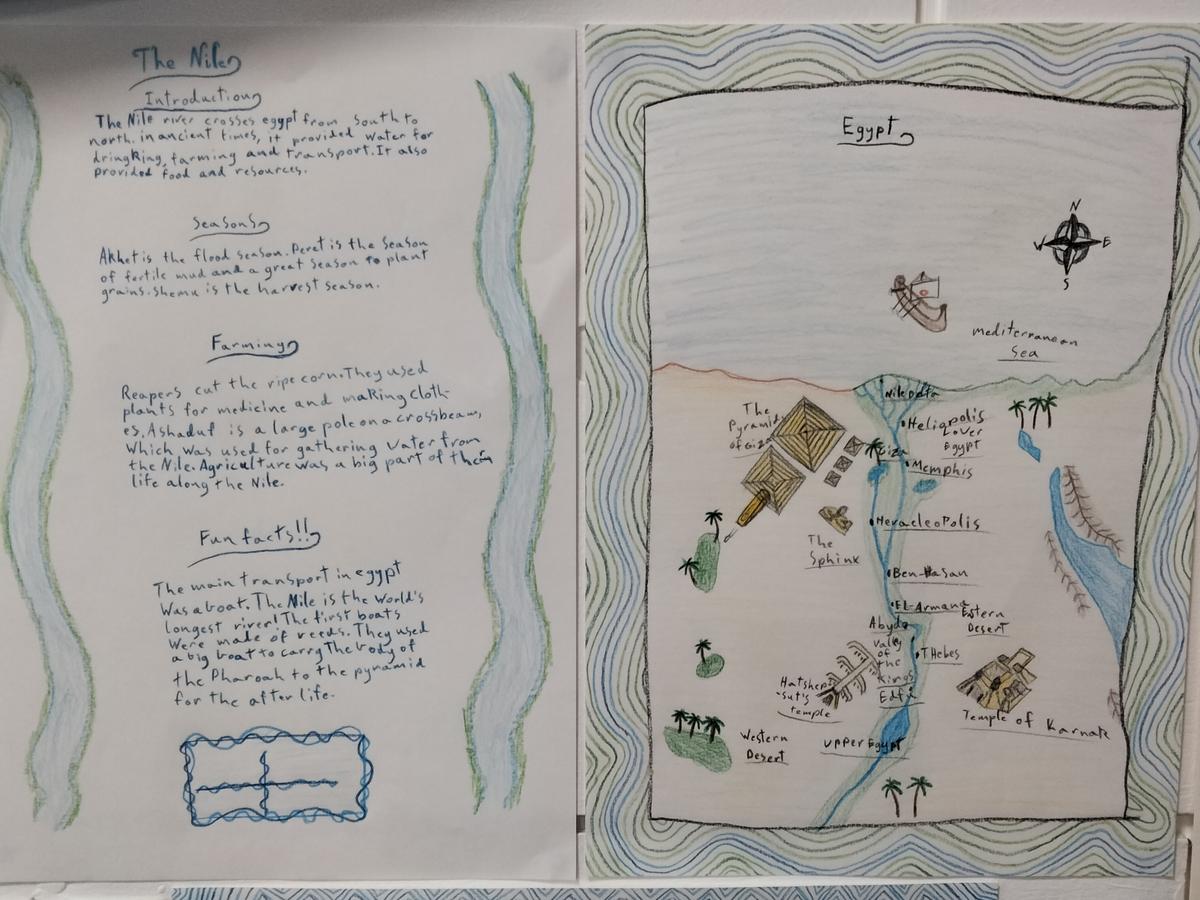 The Nile
Introduction
The Nile river crosses egypt from South to
north. in ancient times, it provided water for
dringking, farming and transport. It also
provided food and resources.
Seasons
Akhet is the flood season. Peret is the season
of fertile mud and a great season to plant
grains. Shemu is the harvest season.
Farming
Reapers cut the ripe corn. They used
plants for medicine and making cloth-
es. A shaduf is a large pole on a crossbeam,
which was used for gathering water from
the Nile. Agriculture was a big part of their
life along the Nile.
Fun facts!!
The main transport in egypt
was a boat. The Nile is the world's
longest river! The first boats
were made of reeds. They used
a big boat to carry the body of
the Pharoah to the pyramid
for the after life.
Egypt
N
W E
S
mediterranean
Sea
Nile Delta
The
Pyramids
of Giza
Heliopolis
Lover
Egypt
Giza
Memphis
Heracleopolis
The
Sphinx
Ben-Hasan
El-Armana
Estern
Desert
Abydo
Valley
of
the
Kings
THebes
Hatshep
-sut's
temple
Edfu
Temple of Karnak
Western
Desert
upper Egypt